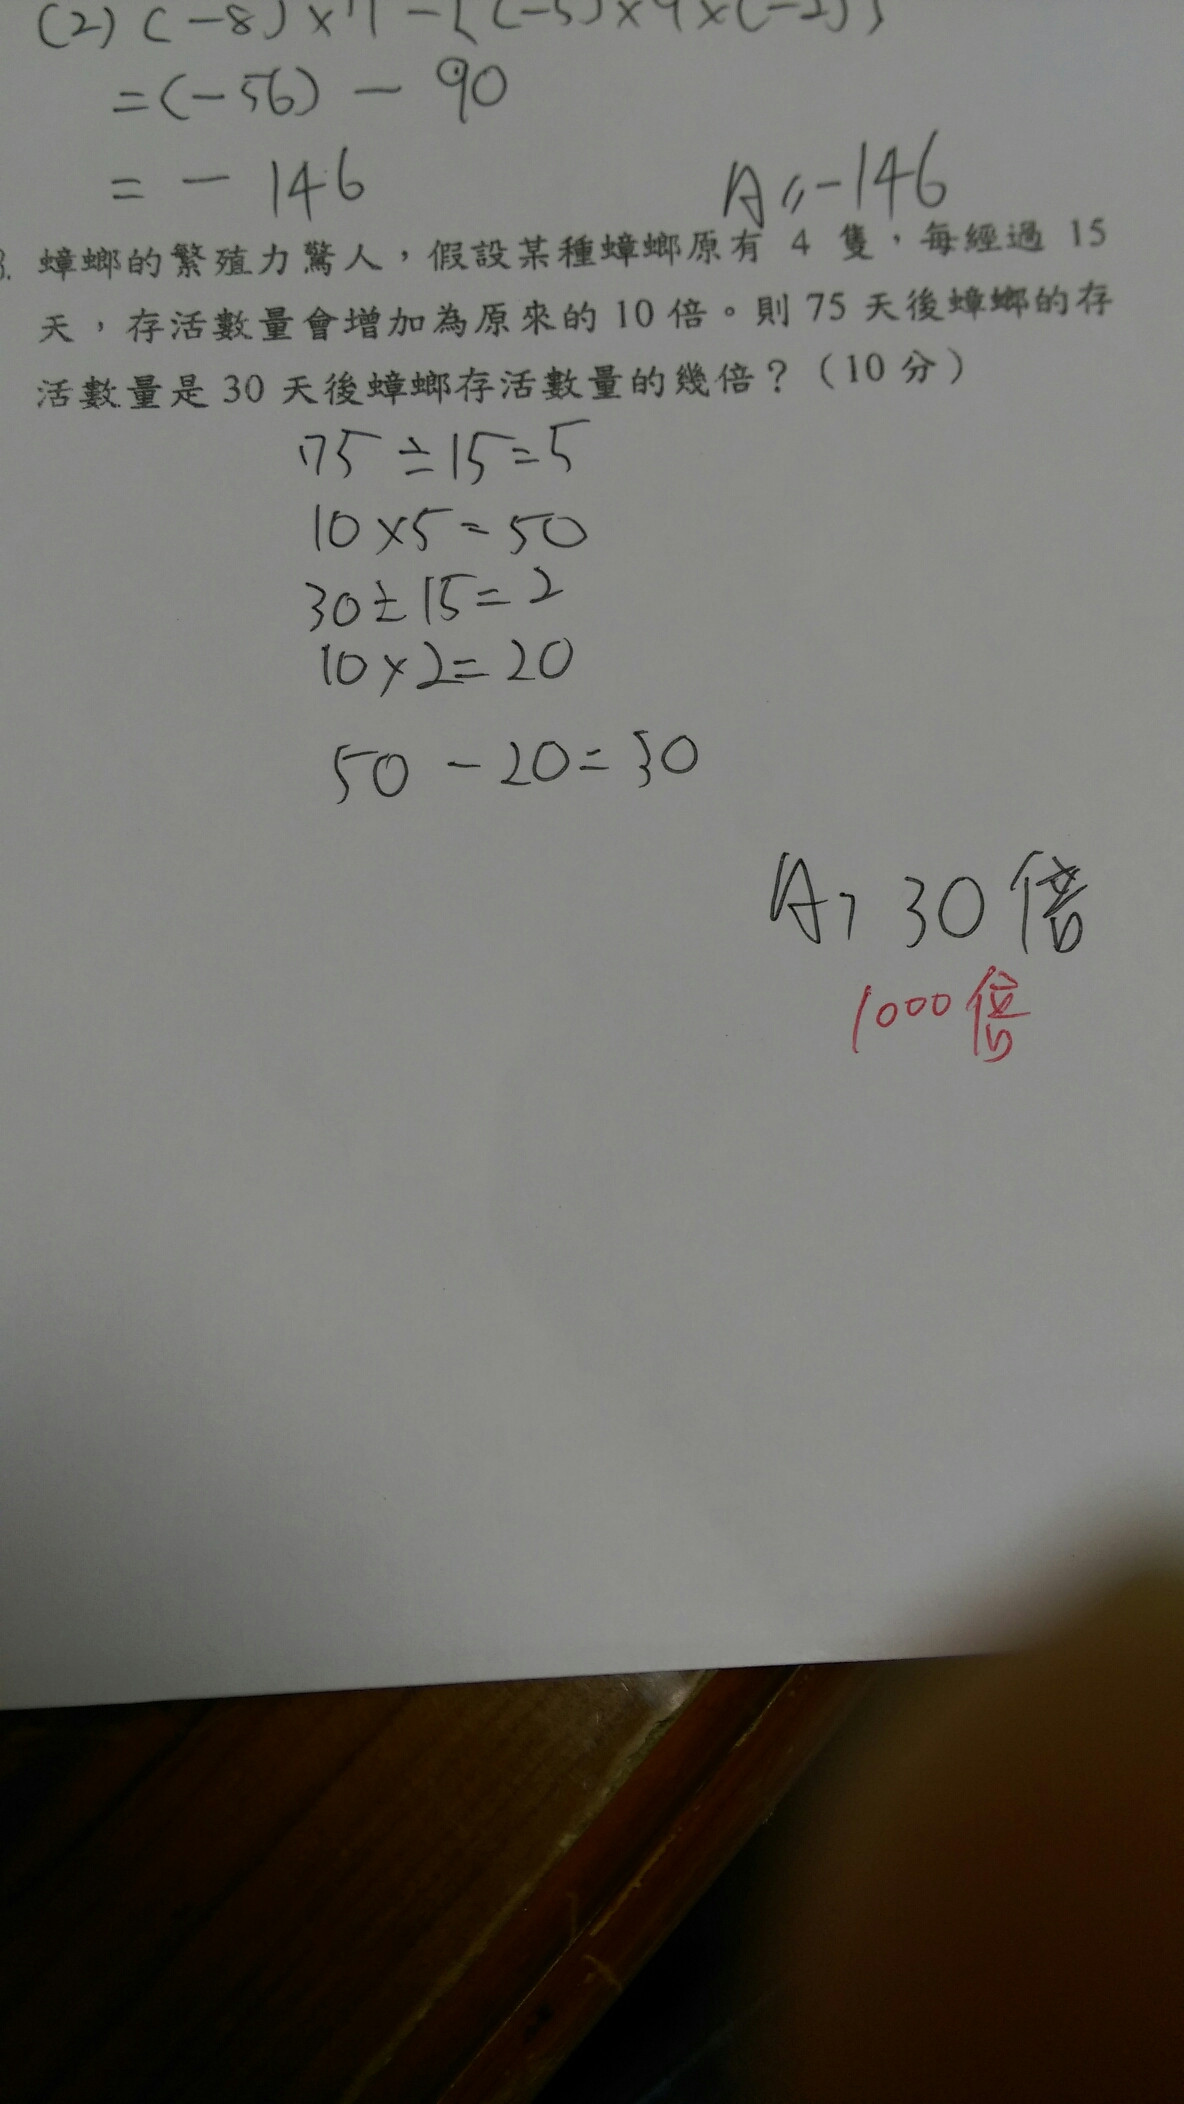 (2) (-8)×7-{(-5)×9×(-2)}
=(-56) - 90
= - 146
A:-146
3. 蟑螂的繁殖力驚人，假設某種蟑螂原有 4 隻，每經過 15
天，存活數量會增加為原來的 10 倍。則 75 天後蟑螂的存
活數量是 30 天後蟑螂存活數量的幾倍？（10 分）
75÷15=5
10×5=50
30÷15=2
10×2=20
50-20=30
A, 30倍
1000倍